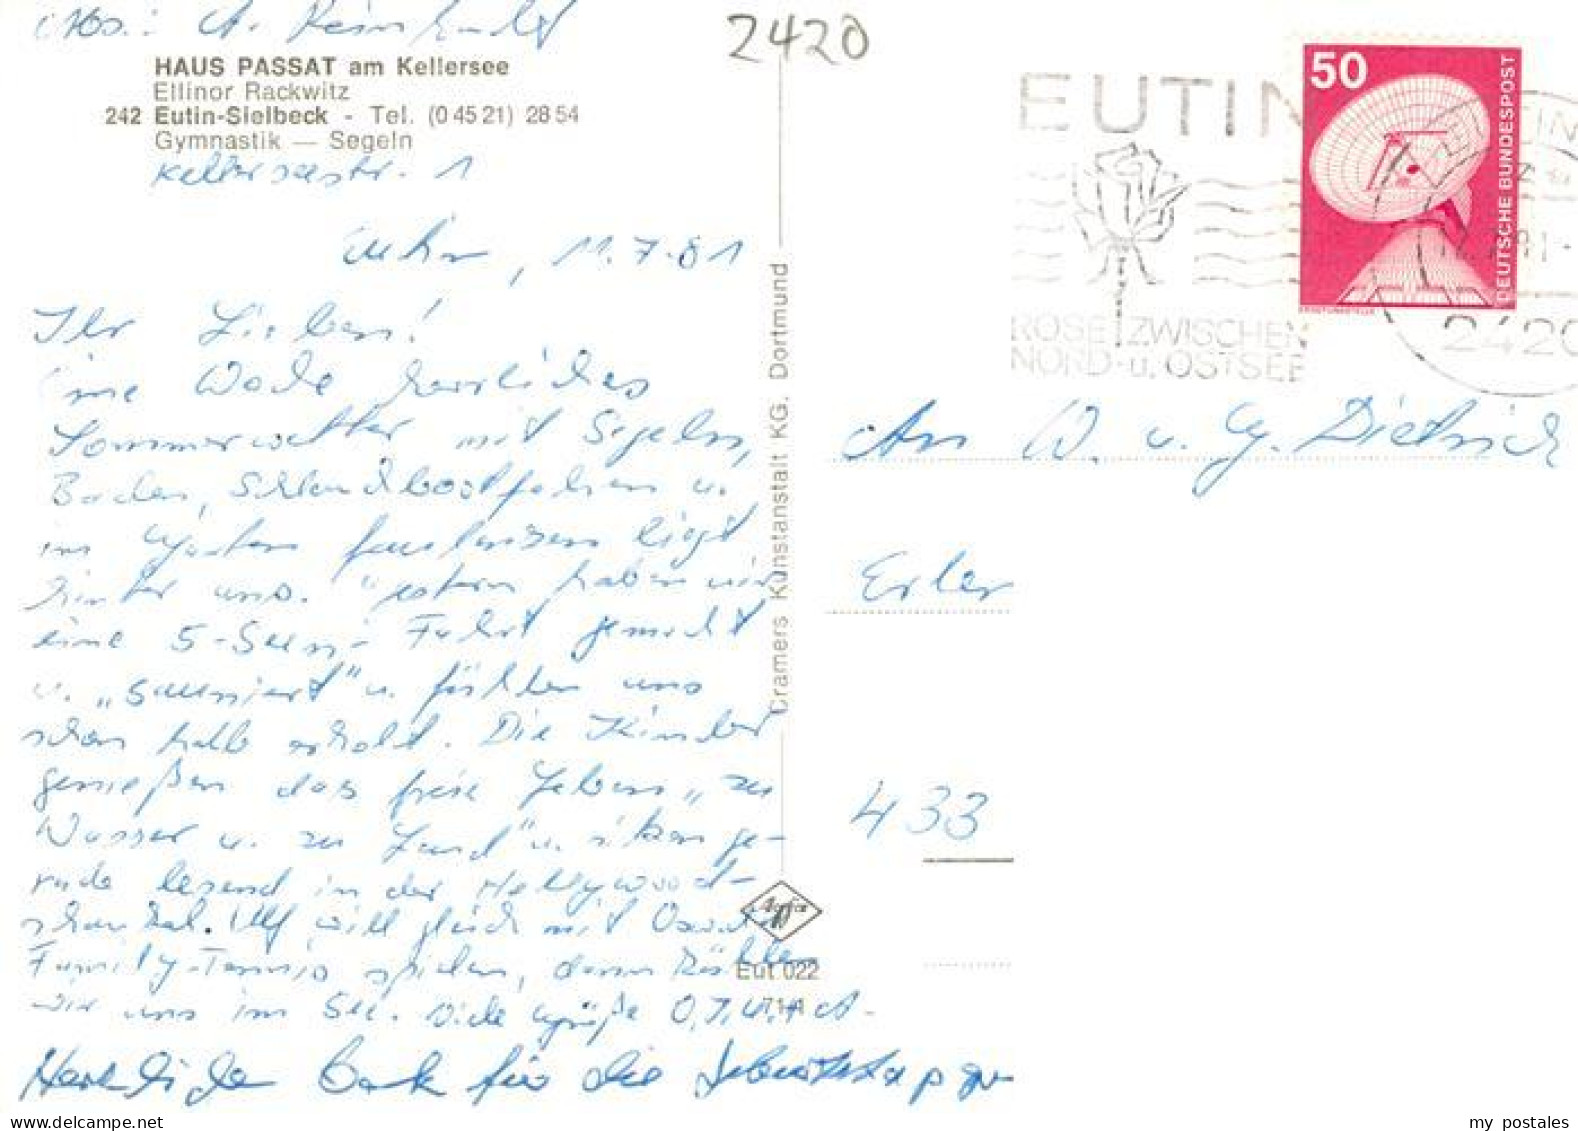 Abs.: A. Reinhardt
HAUS PASSAT am Kellersee
Ellinor Rackwitz
242 Eutin-Sielbeck - Tel. (0 45 21) 28 54
Gymnastik — Segeln
Kellerseestr. 1
2420
11.7.81
Ihr Lieben!
Eine Woche herrliches
Sommerwetter mit Segeln,
Baden, Schlauchbootfahren u.
im Garten faulenzen liegt
hinter uns. Gestern haben wir
eine 5-Seen-Fahrt gemacht
u. „sauniert" u. fühlen uns
schon halb erholt. Die Kinder
genießen das freie Leben „zu
Wasser u. zu Land" u. sitzen ge-
rade lesend in der Hollywood-
schaukel. Ulf will gleich mit
Family-Tennis spielen, dann kühlen
wir uns im See. Viele Grüße
Herzliche Dank für die
Cramers Kunstanstalt KG. Dortmund
Agfa
Eut 022
EUTIN
ROSE ZWISCHEN
NORD- u. OSTSEE
50
DEUTSCHE BUNDESPOST
ERDEFUNKSTELLE
EUTIN
2420
An W. u. G. Dietrich
Erler
433
my postales